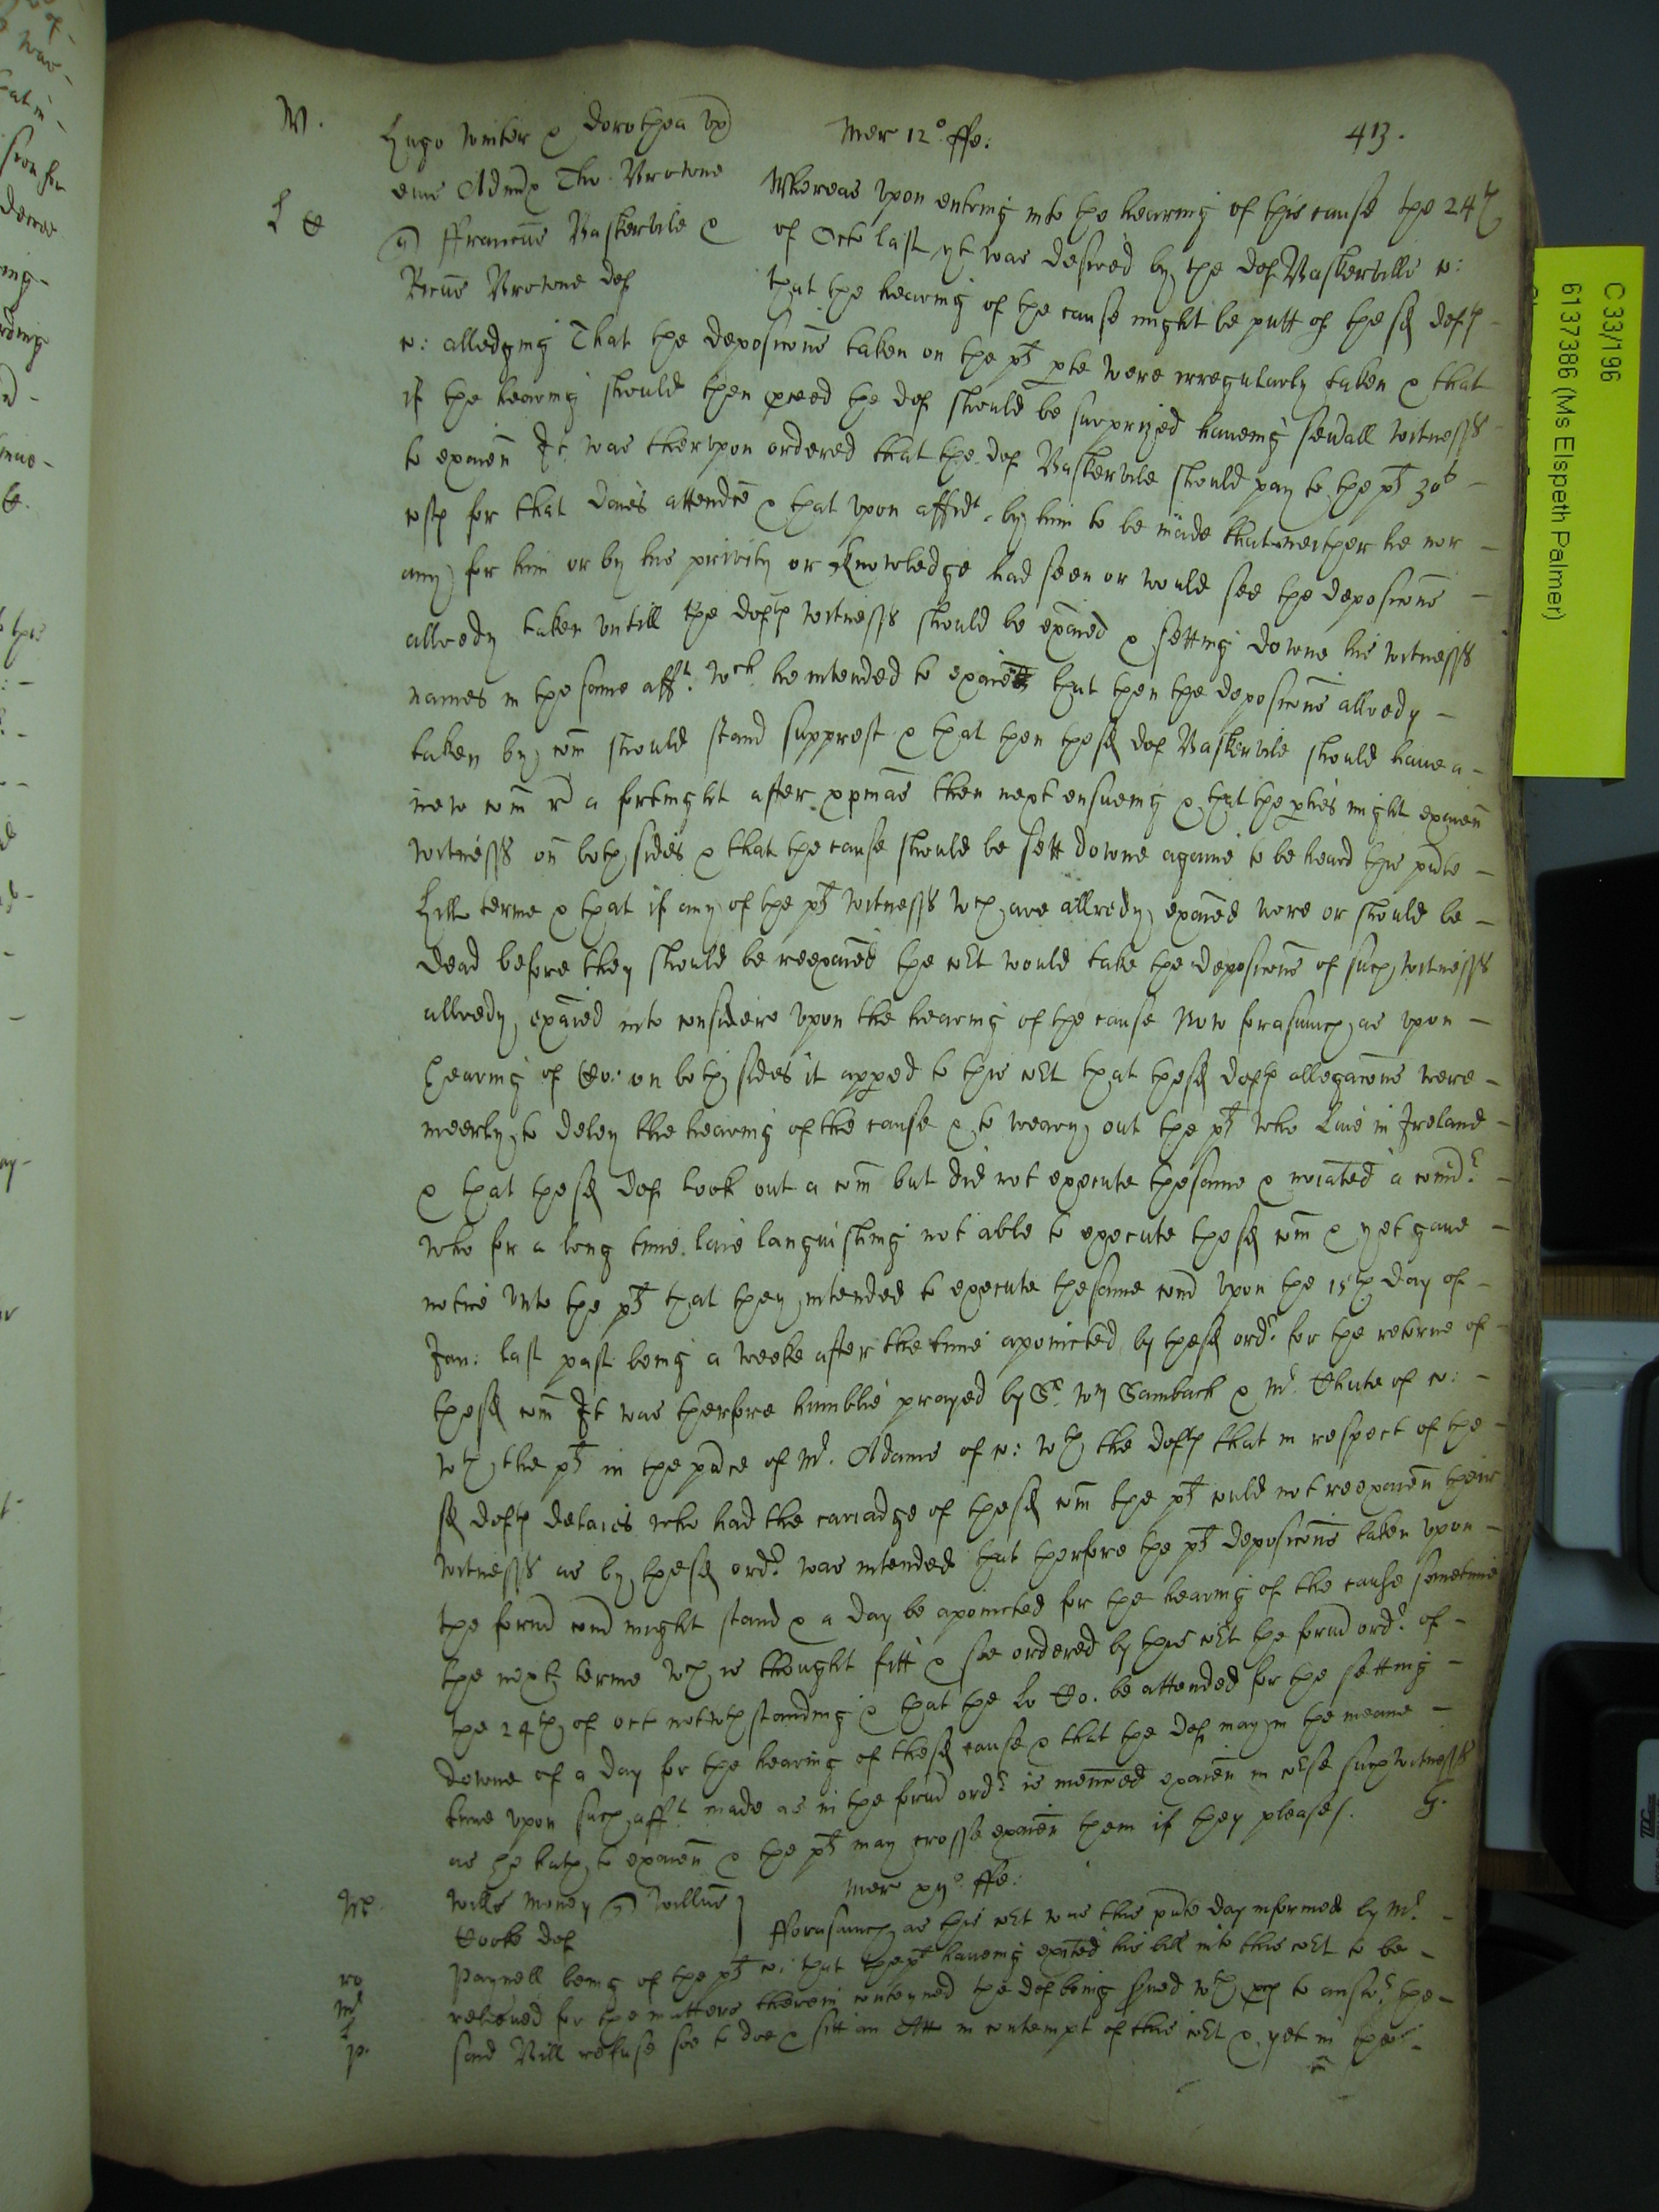 W.
L C
Hugo Winter & Dorothea ux)
eius Adm̃x Tho Browne
q) ffranciũs Baskervile &
Ricũs Browne def
Mer 12° ffe:
413.
Whereas vpon entring into the hearing of this cause the 24th
of Octo last yt was desired by the def Baskerville c:
that the hearing of the cause might be putt of the sd defts
c: alledging That the deposic̃ons taken on the plt pte were irregularly taken & that
if the hearing should then pceed the def should be surprized haueing seũall witnesss
to exam̃ It was therevpon ordered that the def Baskervile should pay to the plt 30s
costs for that daies attendc̃e & that vpon affidt by him to be made that neither he nor
any for him or by his privity or knowledge had seen or would see the deposic̃ons
allredy taken vntill the defts witnesss should be exaĩed & setting downe his witnesss
names in the same afft. wch he intended to exaĩe that then the deposic̃ons allredy
taken by com̃ should stand supprest & that then the sd def Baskervile should haue a
new com̃ rd a fortnight after xpmas then next ensueing & that the pties might exam̃
witnesss on both sides & that the cause should be sett downe againe to be heard this pñte
Hill terme & that if any of the plt witnesss wch are allredy exaĩed were or should be
dead before they should be reexaĩed the cort would take the deposic̃ons of such witnesss
allredy exaĩed into considerc̃ vpon the hearing of the cause Now forasmuch as vpon
hearing of Co: on both sides it appeed to this cort that the sd defts allegac̃ons were
meerly to deley the hearing of the cause & to weary out the plt who Liue in Ireland
& that the sd def took out a com̃ but did not execute the same & no͠iated a com̃r
who for a long time laie languishing not able to execute the sd com̃ & yet gaue
notice vnto the plt that they intended to execute the same com̃ vpon the 15th day of
Jan: last past being a weeke after the time apointed by the sd ordr for the retorne of
the sd com̃ It was therfore humblie prayed by Sr. Wm Sambach & Mr. Chute of c:
wth the plt in the pñce of Mr. Adams of c: wth the defts that in respect of the
sd defts delaies who had the cariadge of the sd com̃ the plt could not reexam̃ their
witnesss as by the sd ordr was intended that therfore the plt deposic̃ons taken vpon
the form̃ com̃ might stand & a day be apointed for the hearing of the cause sometime
the next terme wch is thought fitt & soe ordered by this cort the form̃ ordr of
the 24th of Oct notwthstanding & that the Lo Co. be attended for the setting
downe of a day for the hearing of the sd cause & that the def may in the meane
time vpon such afft made as in the form̃ ordr is menc̃oed exam̃ in corte such witnesss
as he hath to exam̃ & the plt may crosse exam̃ them if they please. G.
Willũs Money q) Willũs
Cooke def
Mer xij° ffe:
fforasmuch as this cort was this pñte day informed by Mr.
Paynell being of the plt c: that the plt haueing exĩted his bill into this cort to be
relieued for the matters therein conteyned the def being serued wth pces to answr the
said Bill refuse soe to doe & sitt an Att in contempt of this cort & yet in the
C 33/196
6137386 (Ms Elspeth Palmer)